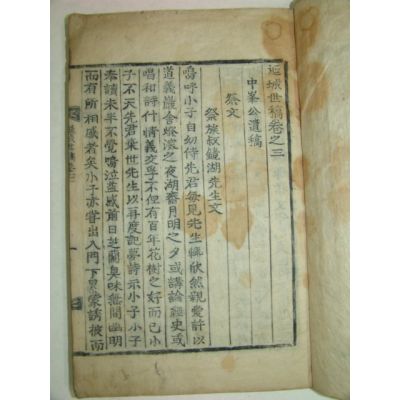 延城世稿卷之三
中峯公遺稿
祭文
祭族叔鏡湖先生文
嗚呼小子自幼侍先君每見先生輒欣然親愛許以
道義嚴舍燈深之夜湖齋月明之夕或講論經史或
唱和詩什情義交孚不但有百年花樹之好而已小
子不天先君棄世以再度記夢詩示小子小子
奉讀未半不覺嗚泣盖感前日芝蘭臭味無間幽明
而有所相感者矣小子亦嘗出入門下累蒙誘掖而